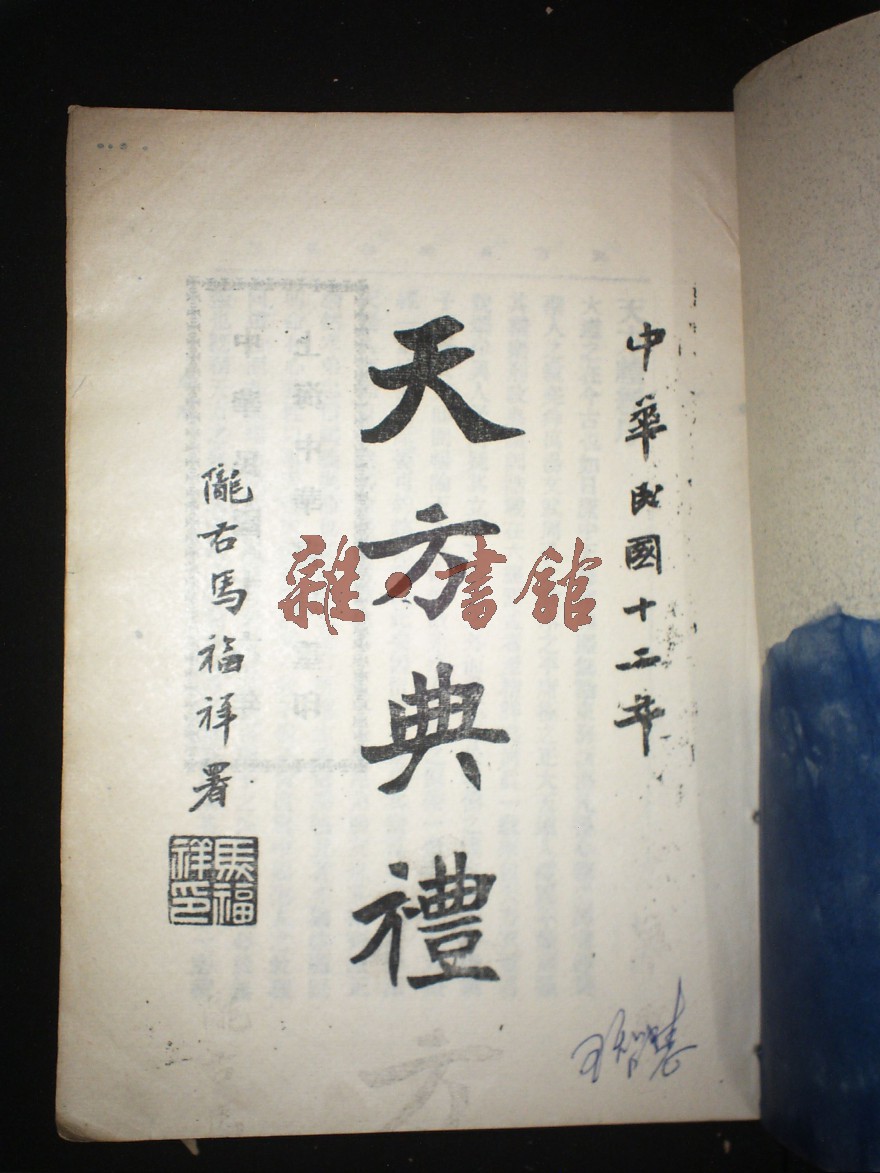 中華民國十二年
天方典禮
隴右馬福祥署
馬福祥印
雜·書館